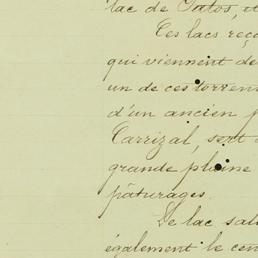 lac de Patos, et
Ces lacs reço
qui viennent de
un de ces torren
d'un ancien p
Carrizal, sont
grande plaine
pâturages.
Le lac salé
également le cen